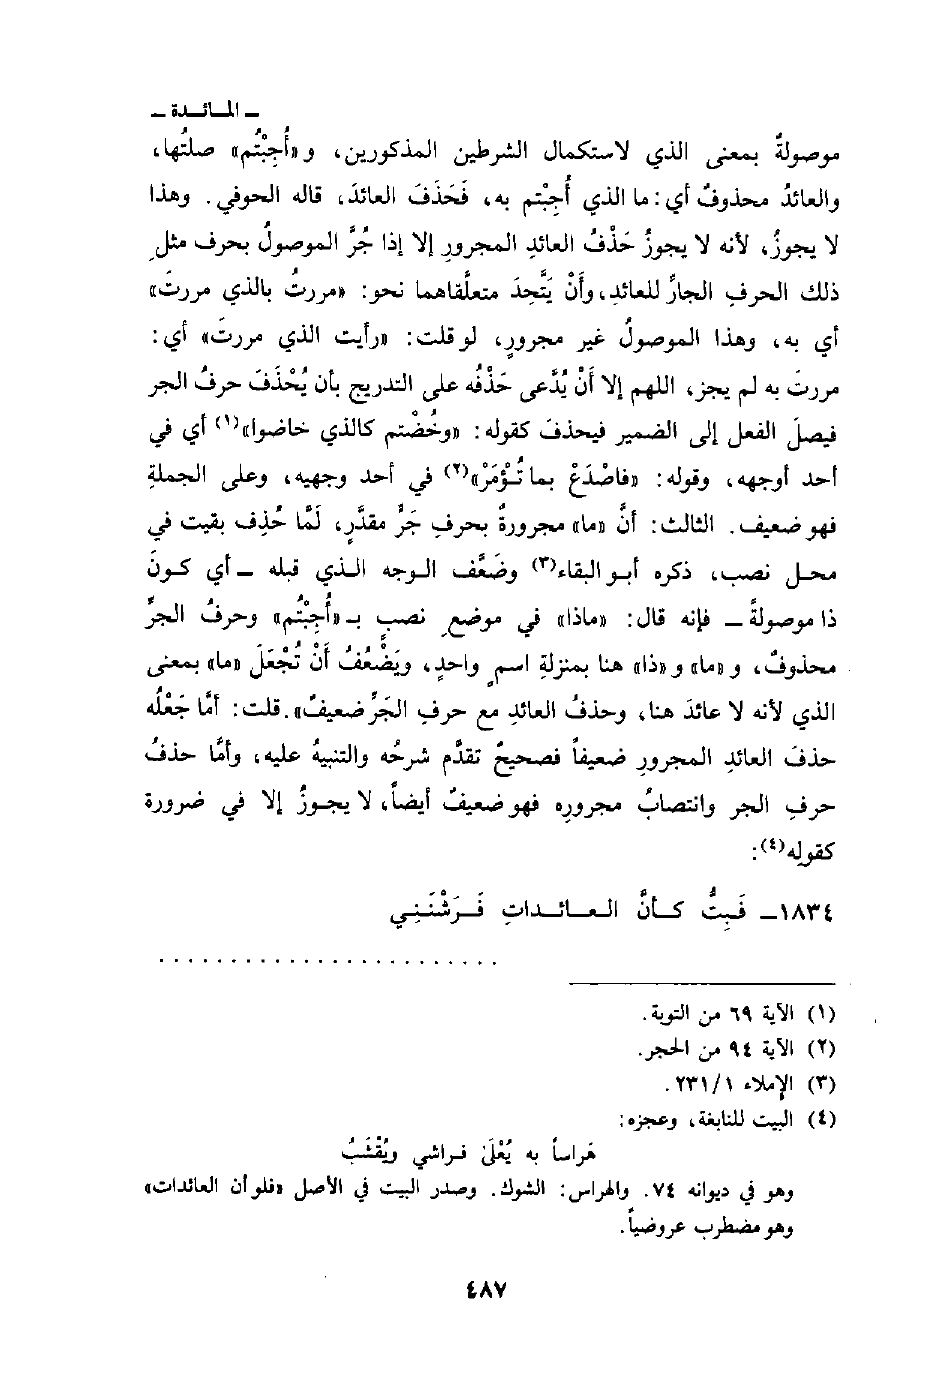 ـ المائدة ـ
موصولةٌ بمعنى الذي لاستكمال الشرطين المذكورين، و «أُجِبْتُم» صلتُها،
والعائدُ محذوفٌ أي: ما الذي أُجِبْتم به، فَحَذَفَ العائدَ، قاله الحوفي. وهذا
لا يجوزُ، لأنه لا يجوزُ حَذْفُ العائدِ المجرورِ إلا إذا جُرَّ الموصولُ بحرف مثلِ
ذلك الحرفِ الجارِّ للعائدِ، وأَنْ يَتَّحِدَ متعلَّقاهما نحو: «مررتُ بالذي مررتَ»
أي به، وهذا الموصولُ غير مجرورٍ، لو قلت: «رأيت الذي مررتَ» أي:
مررتَ به لم يجز، اللهم إلا أَنْ يُدَّعى حَذْفُه على التدريج بأن يُحْذَفَ حرفُ الجر
فيصلَ الفعل إلى الضمير فيحذفَ كقوله: «وخُضْتم كالذي خاضوا»(١) أي في
أحد أوجهه، وقوله: «فاصْدَعْ بما تُؤْمَرْ»(٢) في أحد وجهيه، وعلى الجملةِ
فهو ضعيف. الثالث: أنَّ «ما» مجرورةٌ بحرفِ جَرٍّ مقدَّرٍ، لَمَّا حُذِف بقيت في
محل نصب، ذكره أبو البقاء(٣) وضَعَّف الوجه الذي قبله ـ أي كونَ
ذا موصولةً ـ فإنه قال: «ماذا» في موضعِ نصبٍ بـ «أُجِبْتُم» وحرفُ الجرِّ
محذوفٌ، و «ما» و «ذا» هنا بمنزلةِ اسمٍ واحدٍ، ويَضْعُفُ أَنْ تُجْعَلَ «ما» بمعنى
الذي لأنه لا عائدَ هنا، وحذفُ العائدِ مع حرفِ الجَرِّ ضعيفٌ». قلت: أمَّا جَعْلُه
حذفَ العائدِ المجرورِ ضعيفاً فصحيحٌ تقدَّم شرحُه والتنبيهُ عليه، وأمَّا حذفُ
حرفِ الجر وانتصابُ مجروره فهو ضعيفٌ أيضاً، لا يجوزُ إلا في ضرورة
كقولِه(٤):
١٨٣٤ـ فَبِتُّ كأنَّ العائداتِ فَرَشْنَنِي
. . . . . . . . . . . . . . . . . . . . . . . .
(١) الآية ٦٩ من التوبة.
(٢) الآية ٩٤ من الحجر.
(٣) الإملاء ٢٣١/١.
(٤) البيت للنابغة، وعجزه:
هَراساً به يُعْلَىٰ فراشي ويُقْشَبُ
وهو في ديوانه ٧٤. والهراس: الشوك. وصدر البيت في الأصل «فلو أن العائدات»
وهو مضطرب عروضياً.
٤٨٧